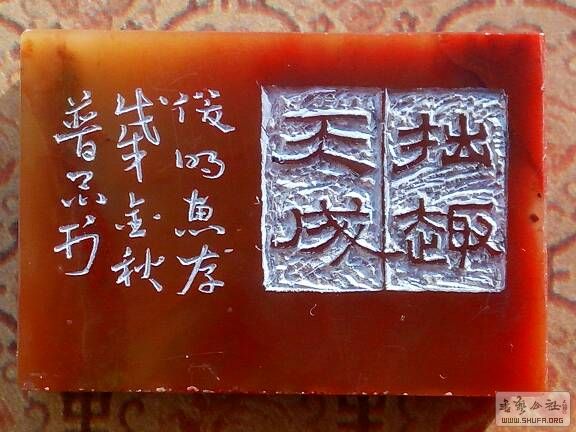 拙趣
天成
俊明惠存
金秋
普刊
书艺公社
WWW.SHUFA.ORG